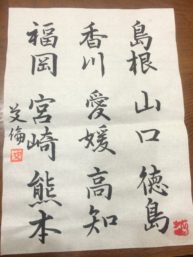 島根山口徳島
香川愛媛高知
福岡宮崎熊本
艾倫